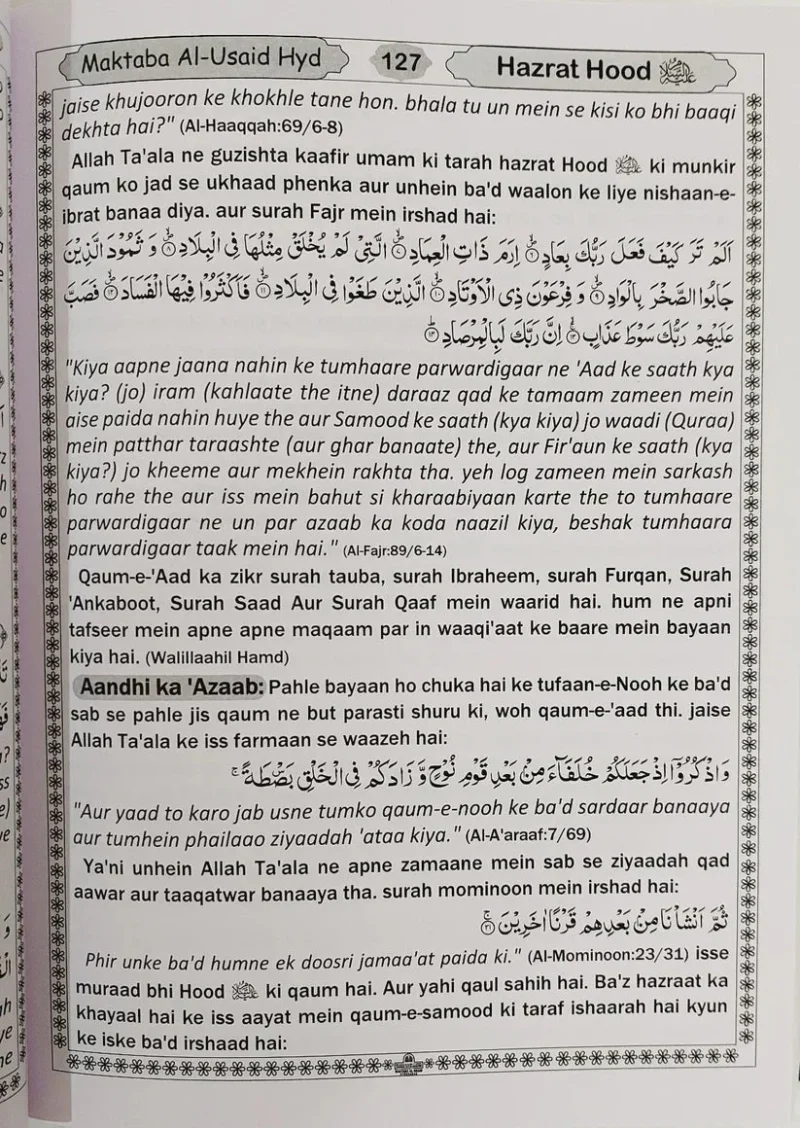 Maktaba Al-Usaid Hyd 127 Hazrat Hood
jaise khujooron ke khokhle tane hon. bhala tu un mein se kisi ko bhi baaqi
dekhta hai?" (Al-Haaqqah:69/6-8)
Allah Ta'ala ne guzishta kaafir umam ki tarah hazrat Hood ki munkir
qaum ko jad se ukhaad phenka aur unhein ba'd waalon ke liye nishaan-e-
ibrat banaa diya. aur surah Fajr mein irshad hai:
اَلَمْ تَرَ كَيْفَ فَعَلَ رَبُّكَ بِعَادٍ ۝۶ اِرَمَ ذَاتِ الْعِمَادِ ۝۷ الَّتِيْ لَمْ يُخْلَقْ مِثْلُهَا فِي الْبِلَادِ ۝۸ وَ ثَمُوْدَ الَّذِيْنَ
جَابُوا الصَّخْرَ بِالْوَادِ ۝۹ وَ فِرْعَوْنَ ذِي الْاَوْتَادِ ۝۱۰ الَّذِيْنَ طَغَوْا فِي الْبِلَادِ ۝۱۱ فَاَكْثَرُوْا فِيْهَا الْفَسَادَ ۝۱۲ فَصَبَّ
عَلَيْهِمْ رَبُّكَ سَوْطَ عَذَابٍ ۝۱۳ اِنَّ رَبَّكَ لَبِالْمِرْصَادِ ۝۱۴
"Kiya aapne jaana nahin ke tumhaare parwardigaar ne 'Aad ke saath kya
kiya? (jo) iram (kahlaate the itne) daraaz qad ke tamaam zameen mein
aise paida nahin huye the aur Samood ke saath (kya kiya) jo waadi (Quraa)
mein patthar taraashte (aur ghar banaate) the, aur Fir'aun ke saath (kya
kiya?) jo kheeme aur mekhein rakhta tha. yeh log zameen mein sarkash
ho rahe the aur iss mein bahut si kharaabiyaan karte the to tumhaare
parwardigaar ne un par azaab ka koda naazil kiya, beshak tumhaara
parwardigaar taak mein hai." (Al-Fajr:89/6-14)
Qaum-e-'Aad ka zikr surah tauba, surah Ibraheem, surah Furqan, Surah
'Ankaboot, Surah Saad Aur Surah Qaaf mein waarid hai. hum ne apni
tafseer mein apne apne maqaam par in waaqi'aat ke baare mein bayaan
kiya hai. (Walillaahil Hamd)
Aandhi ka 'Azaab: Pahle bayaan ho chuka hai ke tufaan-e-Nooh ke ba'd
sab se pahle jis qaum ne but parasti shuru ki, woh qaum-e-'aad thi. jaise
Allah Ta'ala ke iss farmaan se waazeh hai:
وَاذْكُرُوْٓا اِذْ جَعَلَكُمْ خُلَفَآءَ مِنْۢ بَعْدِ قَوْمِ نُوْحٍ وَّ زَادَكُمْ فِي الْخَلْقِ بَصْۜطَةً ۚ
"Aur yaad to karo jab usne tumko qaum-e-nooh ke ba'd sardaar banaaya
aur tumhein phailaao ziyaadah 'ataa kiya." (Al-A'araaf:7/69)
Ya'ni unhein Allah Ta'ala ne apne zamaane mein sab se ziyaadah qad
aawar aur taaqatwar banaaya tha. surah mominoon mein irshad hai:
ثُمَّ اَنْشَاْنَا مِنْۢ بَعْدِهِمْ قَرْنًا اٰخَرِيْنَ ۝۳۱
Phir unke ba'd humne ek doosri jamaa'at paida ki." (Al-Mominoon:23/31) isse
muraad bhi Hood ki qaum hai. Aur yahi qaul sahih hai. Ba'z hazraat ka
khayaal hai ke iss aayat mein qaum-e-samood ki taraf ishaarah hai kyun
ke iske ba'd irshaad hai: